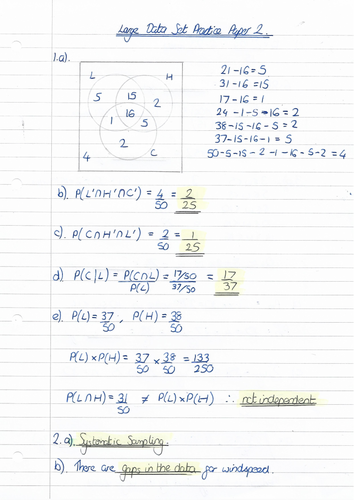 Large Data Set Practice Paper 2.
1.a).
L
H
5
15
2
16
1
5
2
4
C
21-16=5
31-16=15
17-16=1
24-1-5-16=2
38-15-16-5=2
37-15-16-1=5
50-5-15-2-1-16-5-2=4
b). P(L'∩H'∩C') = 4/50 = 2/25
c). P(C∩H'∩L') = 2/50 = 1/25
d). P(C|L) = P(C∩L)/P(L) = 17/50/37/50 = 17/37
e). P(L) = 37/50, P(H) = 38/50
P(L) × P(H) = 37/50 × 38/50 = 133/250
P(L∩H) = 31/50 ≠ P(L) × P(H) ∴ not independent
2. a). Systematic Sampling.
b). There are gaps in the data for windspeed.